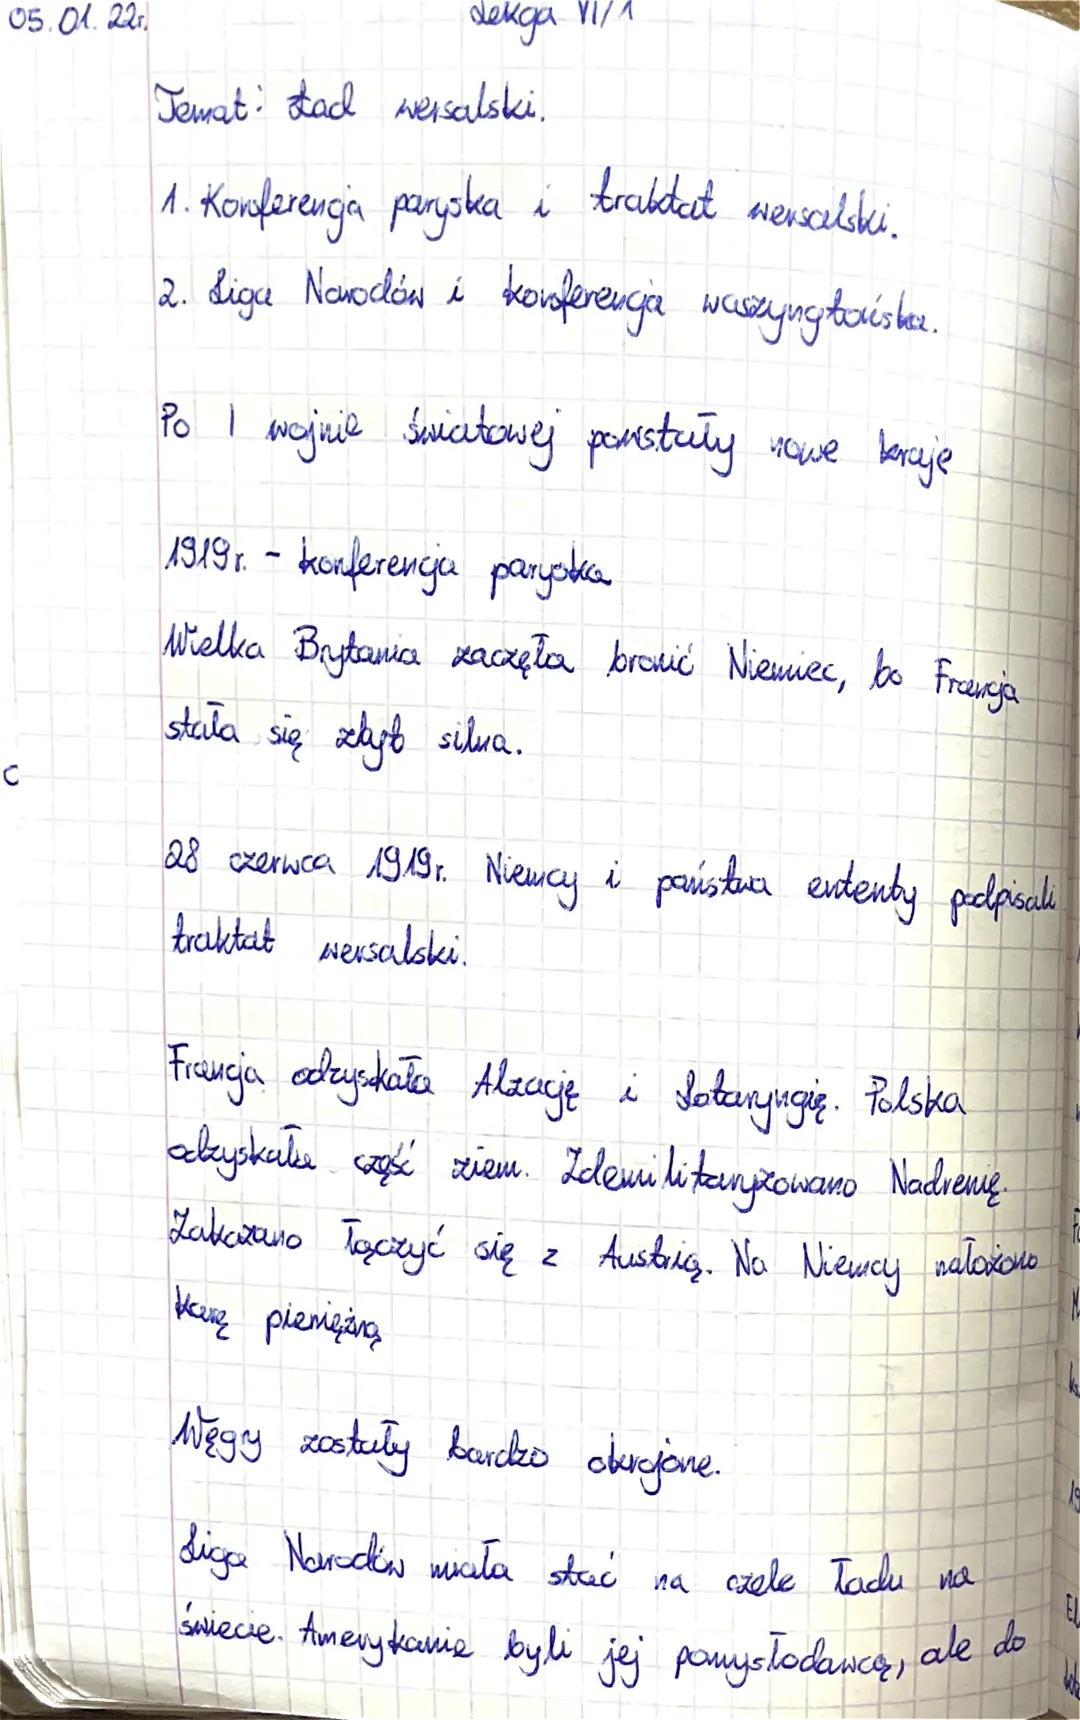 05.01.22r. Lekcja VI/1
Temat: Ład wersalski.
1. Konferencja paryska i traktat wersalski.
2. Liga Narodów i konferencja waszyngtońska.
Po I wojnie światowej powstały nowe kraje
1919r. - konferencja paryska
Wielka Brytania zaczęła bronić Niemiec, bo Francja
stała się zbyt silna.
28 czerwca 1919r. Niemcy i państwa ententy podpisali
traktat wersalski.
Francja odzyskała Alzację i Lotaryngię. Polska
odzyskała część ziem. Zdemilitaryzowano Nadrenię.
Zakazano łączyć się z Austrią. Na Niemcy nałożono
karę pieniężną
Węgry zostały bardzo okrojone.
Liga Narodów miała stać na czele ładu na
świecie. Amerykanie byli jej pomysłodawcą, ale do